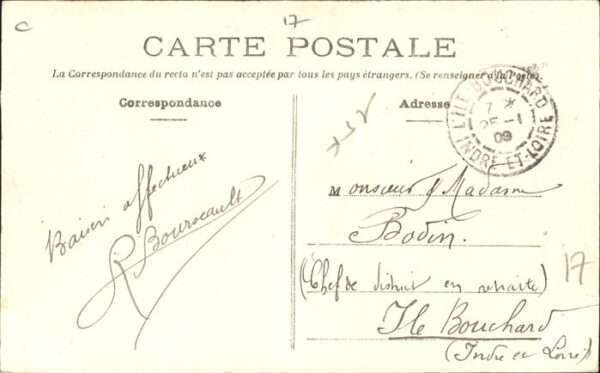 C
17
CARTE POSTALE
La Correspondance du recto n'est pas acceptée par tous les pays étrangers. (Se renseigner à la Poste).
Correspondance
Adresse
L'ILE BOUCHARD
7
25 -1
09
INDRE-ET-LOIRE
Baisers affectueux
R Bourseault
Monsieur & Madame
Bodin.
(Chef de district en retraite)
17
Ile Bouchard
(Indre et Loire)